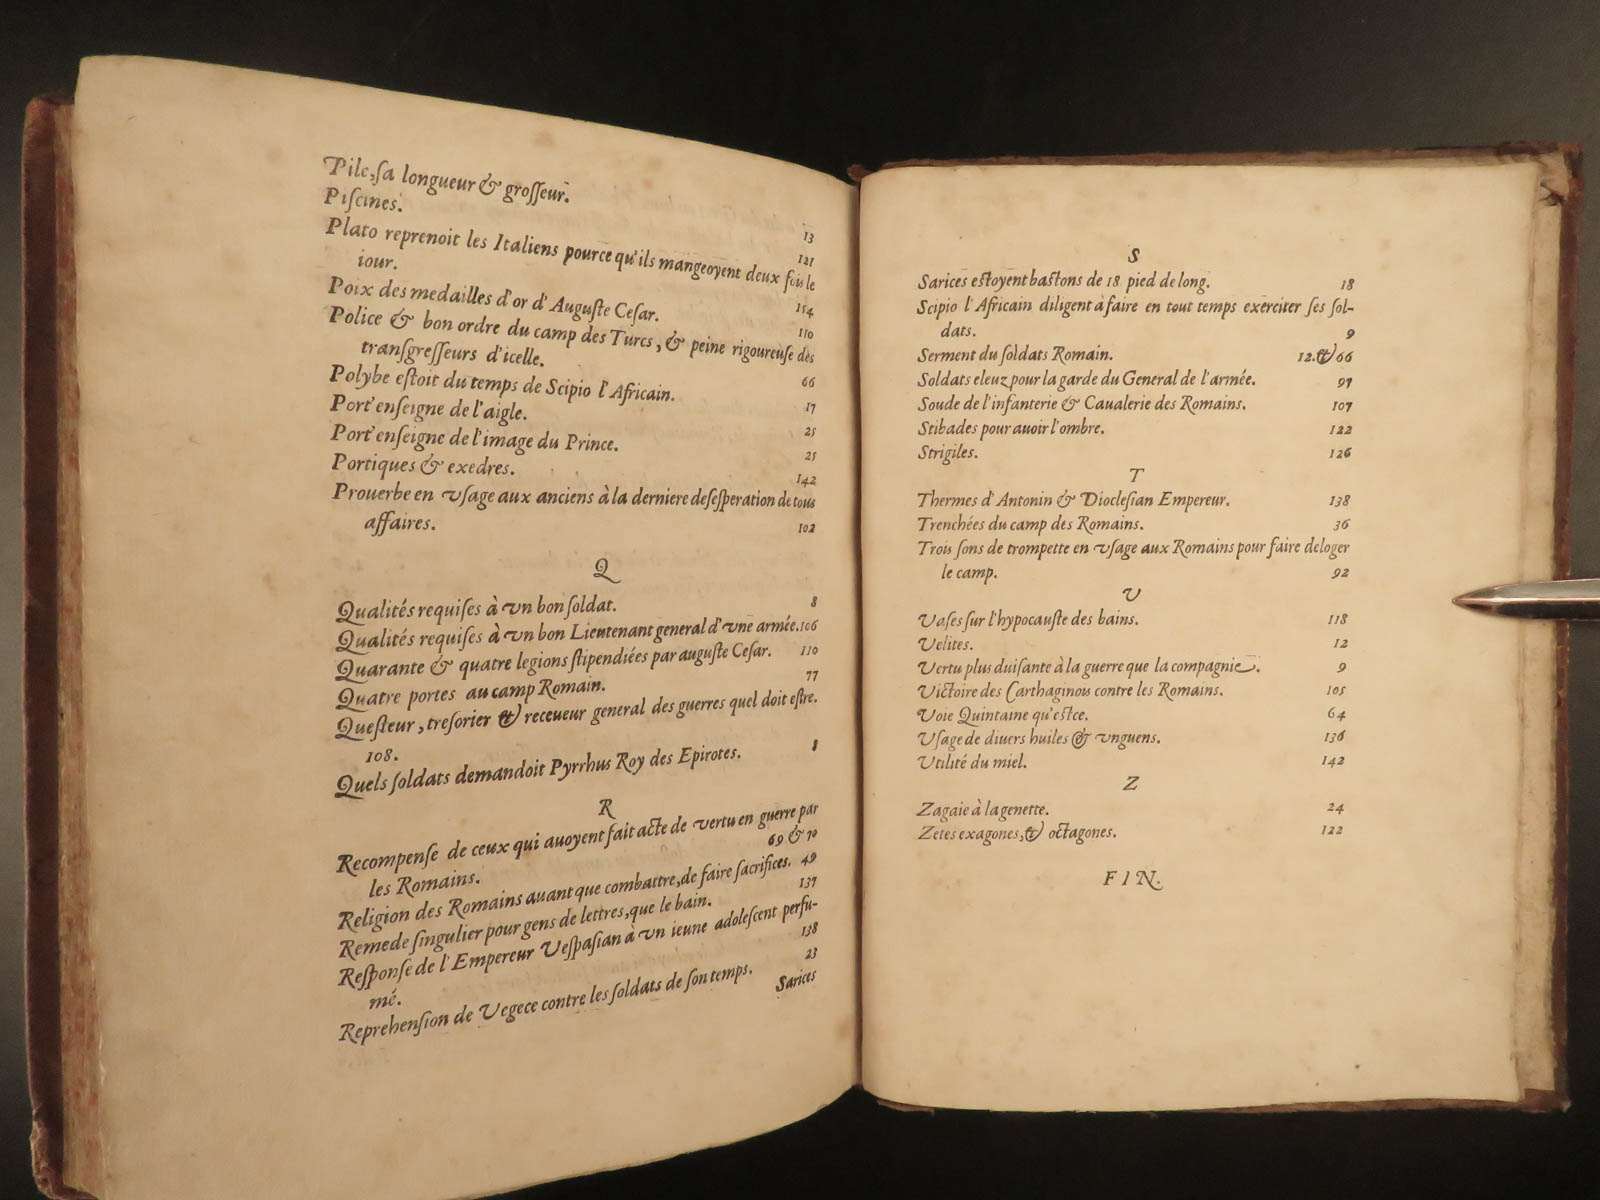 Pile, ſa longueur & groſſeur. 13
Piſcines. 121
Plato reprenoit les Italiens pource qu'ils mangeoyent deux fois le
iour. 154
Poix des medailles d'or d'Auguſte Ceſar. 110
Police & bon ordre du camp des Turcs, & peine rigoureuſe des
tranſgreſſeurs d'icelle. 66
Polybe eſtoit du temps de Scipio l'Africain. 17
Port'enſeigne de l'aigle. 25
Port'enſeigne de l'image du Prince. 25
Portiques & exedres. 142
Prouerbe en vſage aux anciens à la derniere deſeſperation de tous
affaires. 102
Q
Qualités requiſes à vn bon ſoldat. 8
Qualités requiſes à vn bon Lieutenant general d'vne armée. 106
Quarante & quatre legions ſtipendiées par auguſte Ceſar. 110
Quatre portes au camp Romain. 77
Queſteur, treſorier & receueur general des guerres quel doit eſtre.
108.
Quels ſoldats demandoit Pyrrhus Roy des Epirotes. 8
R
Recompenſe de ceux qui auoyent fait acte de vertu en guerre par
les Romains. 69 & 70
Religion des Romains auant que combattre, de faire ſacrifices. 49
Remede ſingulier pour gens de lettres, que le bain. 137
Reſponſe de l'Empereur Veſpaſian à vn ieune adoleſcent perfu-
mé. 138
Reprehenſion de Vegece contre les ſoldats de ſon temps. 23
Sarices
S
Sarices eſtoyent baſtons de 18. pied de long. 18
Scipio l'Africain diligent à faire en tout temps exerciter ſes ſol-
dats. 9
Serment du ſoldats Romain. 12. & 66
Soldats eleuz pour la garde du General de l'armée. 97
Soude de l'infanterie & Caualerie des Romains. 107
Stibades pour auoir l'ombre. 122
Strigiles. 126
T
Thermes d'Antonin & Diocleſian Empereur. 138
Trenchées du camp des Romains. 36
Trois ſons de trompette en vſage aux Romains pour faire deloger
le camp. 92
V
Vaſes ſur l'hypocauſte des bains. 118
Velites. 12
Vertu plus duiſante à la guerre que la compagnie. 9
Victoire des Carthaginois contre les Romains. 105
Voie Quintaine qu'eſtce. 64
Vſage de diuers huiles & vnguens. 136
Vtilité du miel. 142
Z
Zagaie à la genette. 24
Zetes exagones, & octagones. 122
FIN.